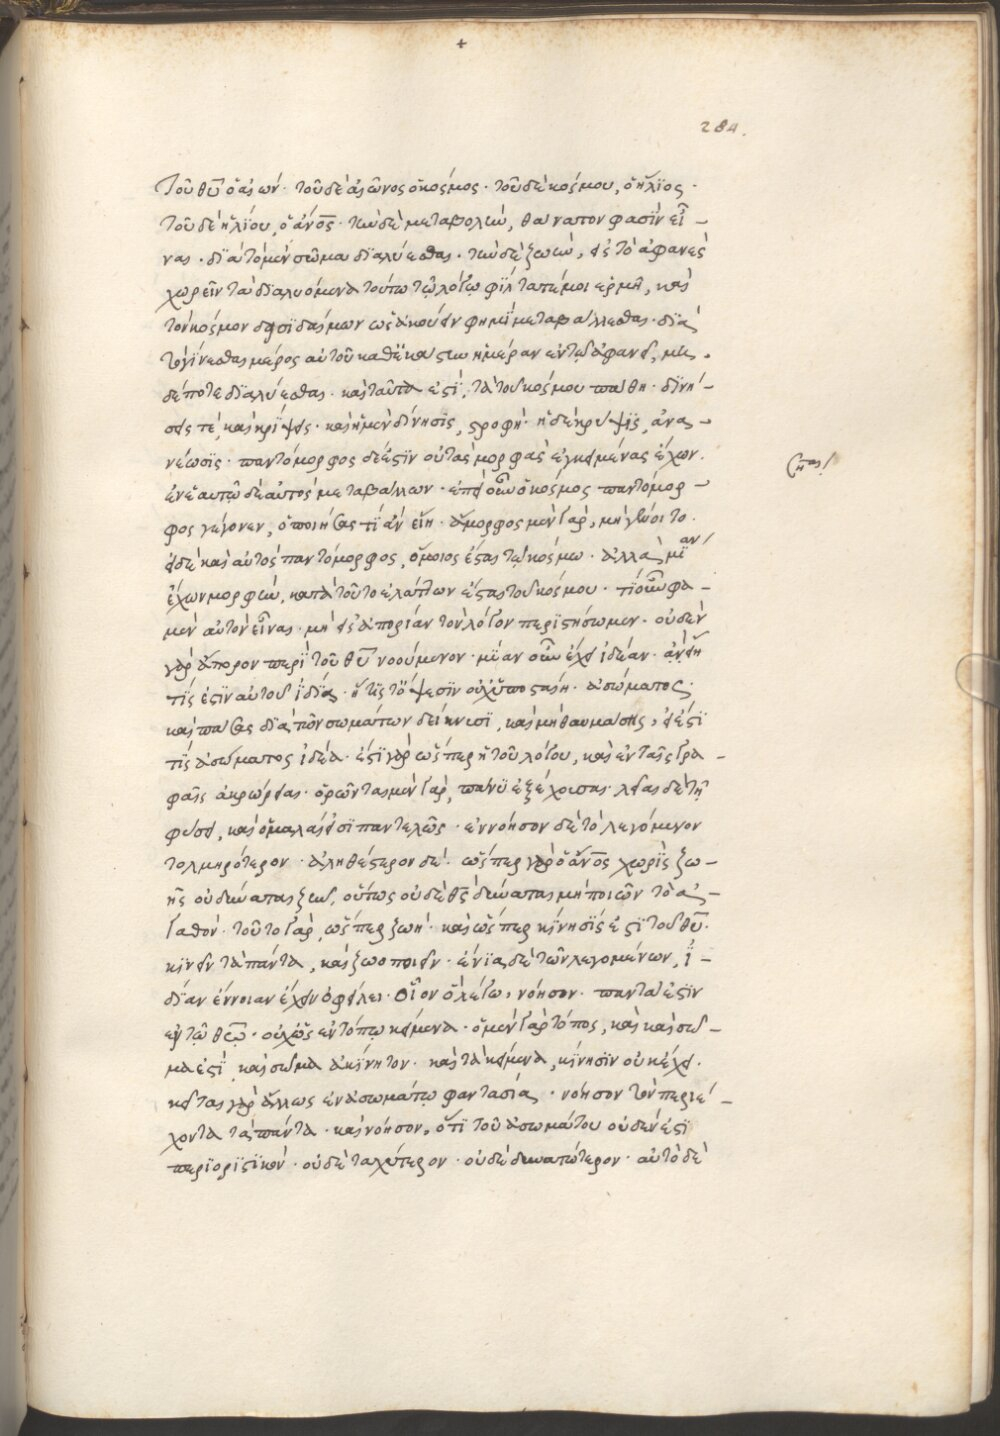 +
284.
Τοῦ θῦ ὁ αἰών· τοῦ δὲ αἰῶνος ὁ κόσμος· τοῦ δὲ κόσμου, ὁ ἥλϊος·
τοῦ δὲ ἡλίου, ὁ ἄνος· τὴν δὲ μεταβολὴν, θάνατον φασὶν εἶ–
ναι· διὰ τὸ μὲν σῶμα διαλύεσθαι· τὴν δὲ ζωὴν, εἰς τὸ ἀφανὲς
χωρεῖν τὰ διαλυόμενα τούτω τῷ λόγῳ φίλτατέ μοι ἑρμῆ, καὶ
τὸν κόσμον δεισιδαίμων ὡς ἀκούειν φημὶ μεταβάλλεσθαι· διὰ
τὸ γίνεσθαι μέρος αὐτοῦ καθ' ἑκάστην ἡμέραν ἐν τῷ ἀφανεῖ, μη–
δέποτε διαλύεσθαι· καὶ ταῦτα ἐστὶ, τὰ τοῦ κόσμου πάθη· δινή–
σεις τὲ, καὶ κρύψεις· καὶ ἡ μὲν δίνησις, στροφή· ἡ δὲ κρύψις, ἀνα–
νέωσις· παντόμορφος δέ ἐστιν οὐ τὰς μορφὰς ἐγκειμένας ἔχων·
ἐν ἑαυτῷ δὲ αὐτὸς μεταβάλλων· ἐπεὶ οὖν ὁ κόσμος παντόμορ–
φος γέγονεν, ὁ ποιήσας τί ἂν εἴη· ἄμορφος μὲν γὰρ, μὴ γένοιτο·
εἰ δὲ καὶ αὐτὸς παντόμορφος, ὅμοιος ἔσται τῷ κόσμω· ἀλλὰ μίαν
ἔχων μορφὴν, κατὰ τοῦτο ἐλάττων ἔσται τοῦ κόσμου· τί οὖν φα–
μὲν αὐτὸν εἶναι· μὴ εἰς ἀπορίαν τὸν λόγον περιστήσωμεν· οὐδὲν
γὰρ ἄπορον περὶ τοῦ θῦ νοούμενον· μίαν οὖν ἔχει ἰδέαν· ἂν εἴη
τίς ἐστιν αὐτοῦ ἰδία· ἥτις τὸ ὄψεσιν οὐχ ὑποσταίη· ἀσώματος·
καὶ πάσας διὰ τῶν σωμάτων δείκνυσι, καὶ μὴ θαυμάσης, εἰ ἔστι
τὶς ἀσώματος ἰδέα· ἔστι γὰρ ὥσπερ ἡ τοῦ λόγου, καὶ ἐν ταῖς γρα–
φαῖς ἀκρώρειαι· ὁρῶνται μὲν γὰρ, πάνυ ἐξέχουσαι· λεῖαι δὲ τῇ
φύσει, καὶ ὁμαλαί εἰσι παντελῶς· ἐννόησον δὲ τὸ λεγόμενον
τολμηρότερον· ἀληθέστερον δέ· ὥσπερ γὰρ ὁ ἄνος χωρὶς ζω–
ῆς οὐ δύναται ζῆν, οὕτως οὐδὲ ὁ θς δύναται μὴ ποιῶν τὸ ἀ–
γαθόν· τοῦτο γὰρ, ὥσπερ ζωή· καὶ ὥσπερ κίνησίς ἐστι τοῦ θῦ·
κινεῖν τὰ πάντα, καὶ ζωοποιεῖν· ἔνια δὲ τῶν λεγομένων, ἰ–
δίαν ἔννοιαν ἔχειν ὀφείλει· οἷον ὃ λέγω, νόησον· πάντα ἐστὶν
ἐν τῷ θεῷ· οὐχ ὡς ἐν τόπῳ κείμενα· ὁ μὲν γὰρ τόπος, καὶ καὶ σῶ–
μα ἐστὶ, καὶ σῶμα ἀκίνητον· καὶ τὰ κείμενα, κίνησιν οὐκ ἔχει·
κεῖται γὰρ ἄλλως ἐν ἀσωμάτῳ φαντασία· νόησον τὸν περιέ–
χοντα τὰ πάντα· καὶ νόησον, ὅτι τοῦ ἀσωμάτου οὐδέν ἐστι
περιοριστικόν· οὐδὲ ταχύτερον· οὐδὲ δυνατώτερον· αὐτὸ δὲ